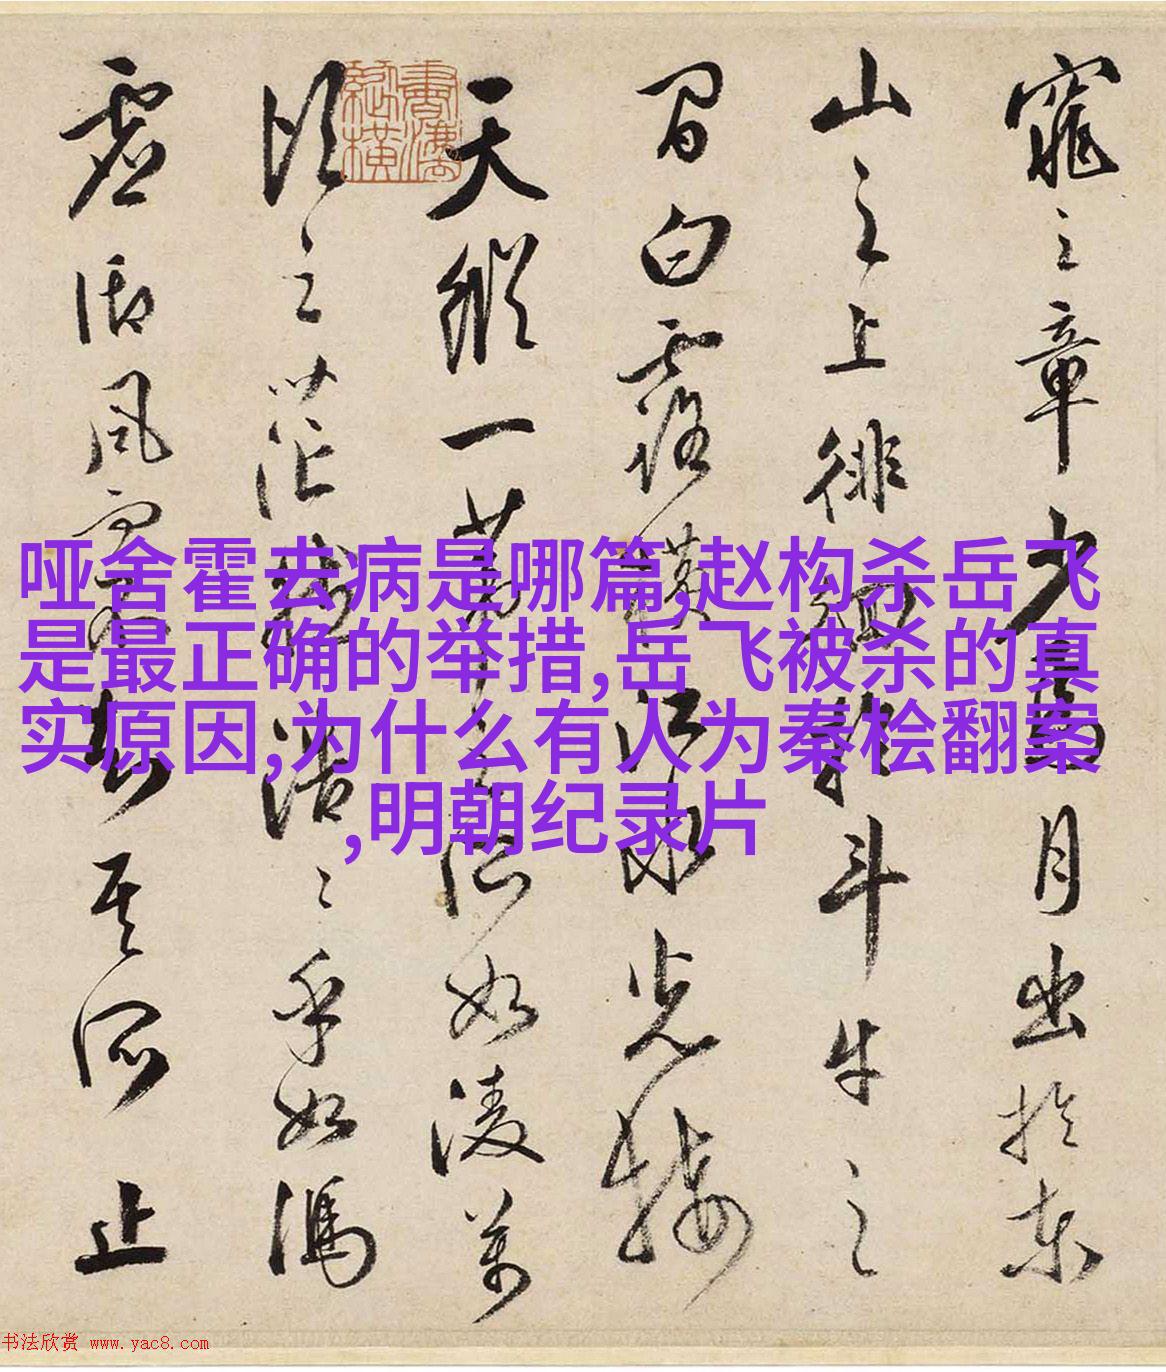 窕之章少焉月出於東
山之上徘徊於斗牛之
間白露橫江水光接
天縱一葦之所如凌萬
頃之茫然浩〻乎如馮
虛御風而不知其所止
哑舍霍去病是哪篇,赵构杀岳飞
是最正确的举措,岳飞被杀的真
实原因,为什么有人为秦桧翻案
,明朝纪录片
书法欣赏 www.yac8.com